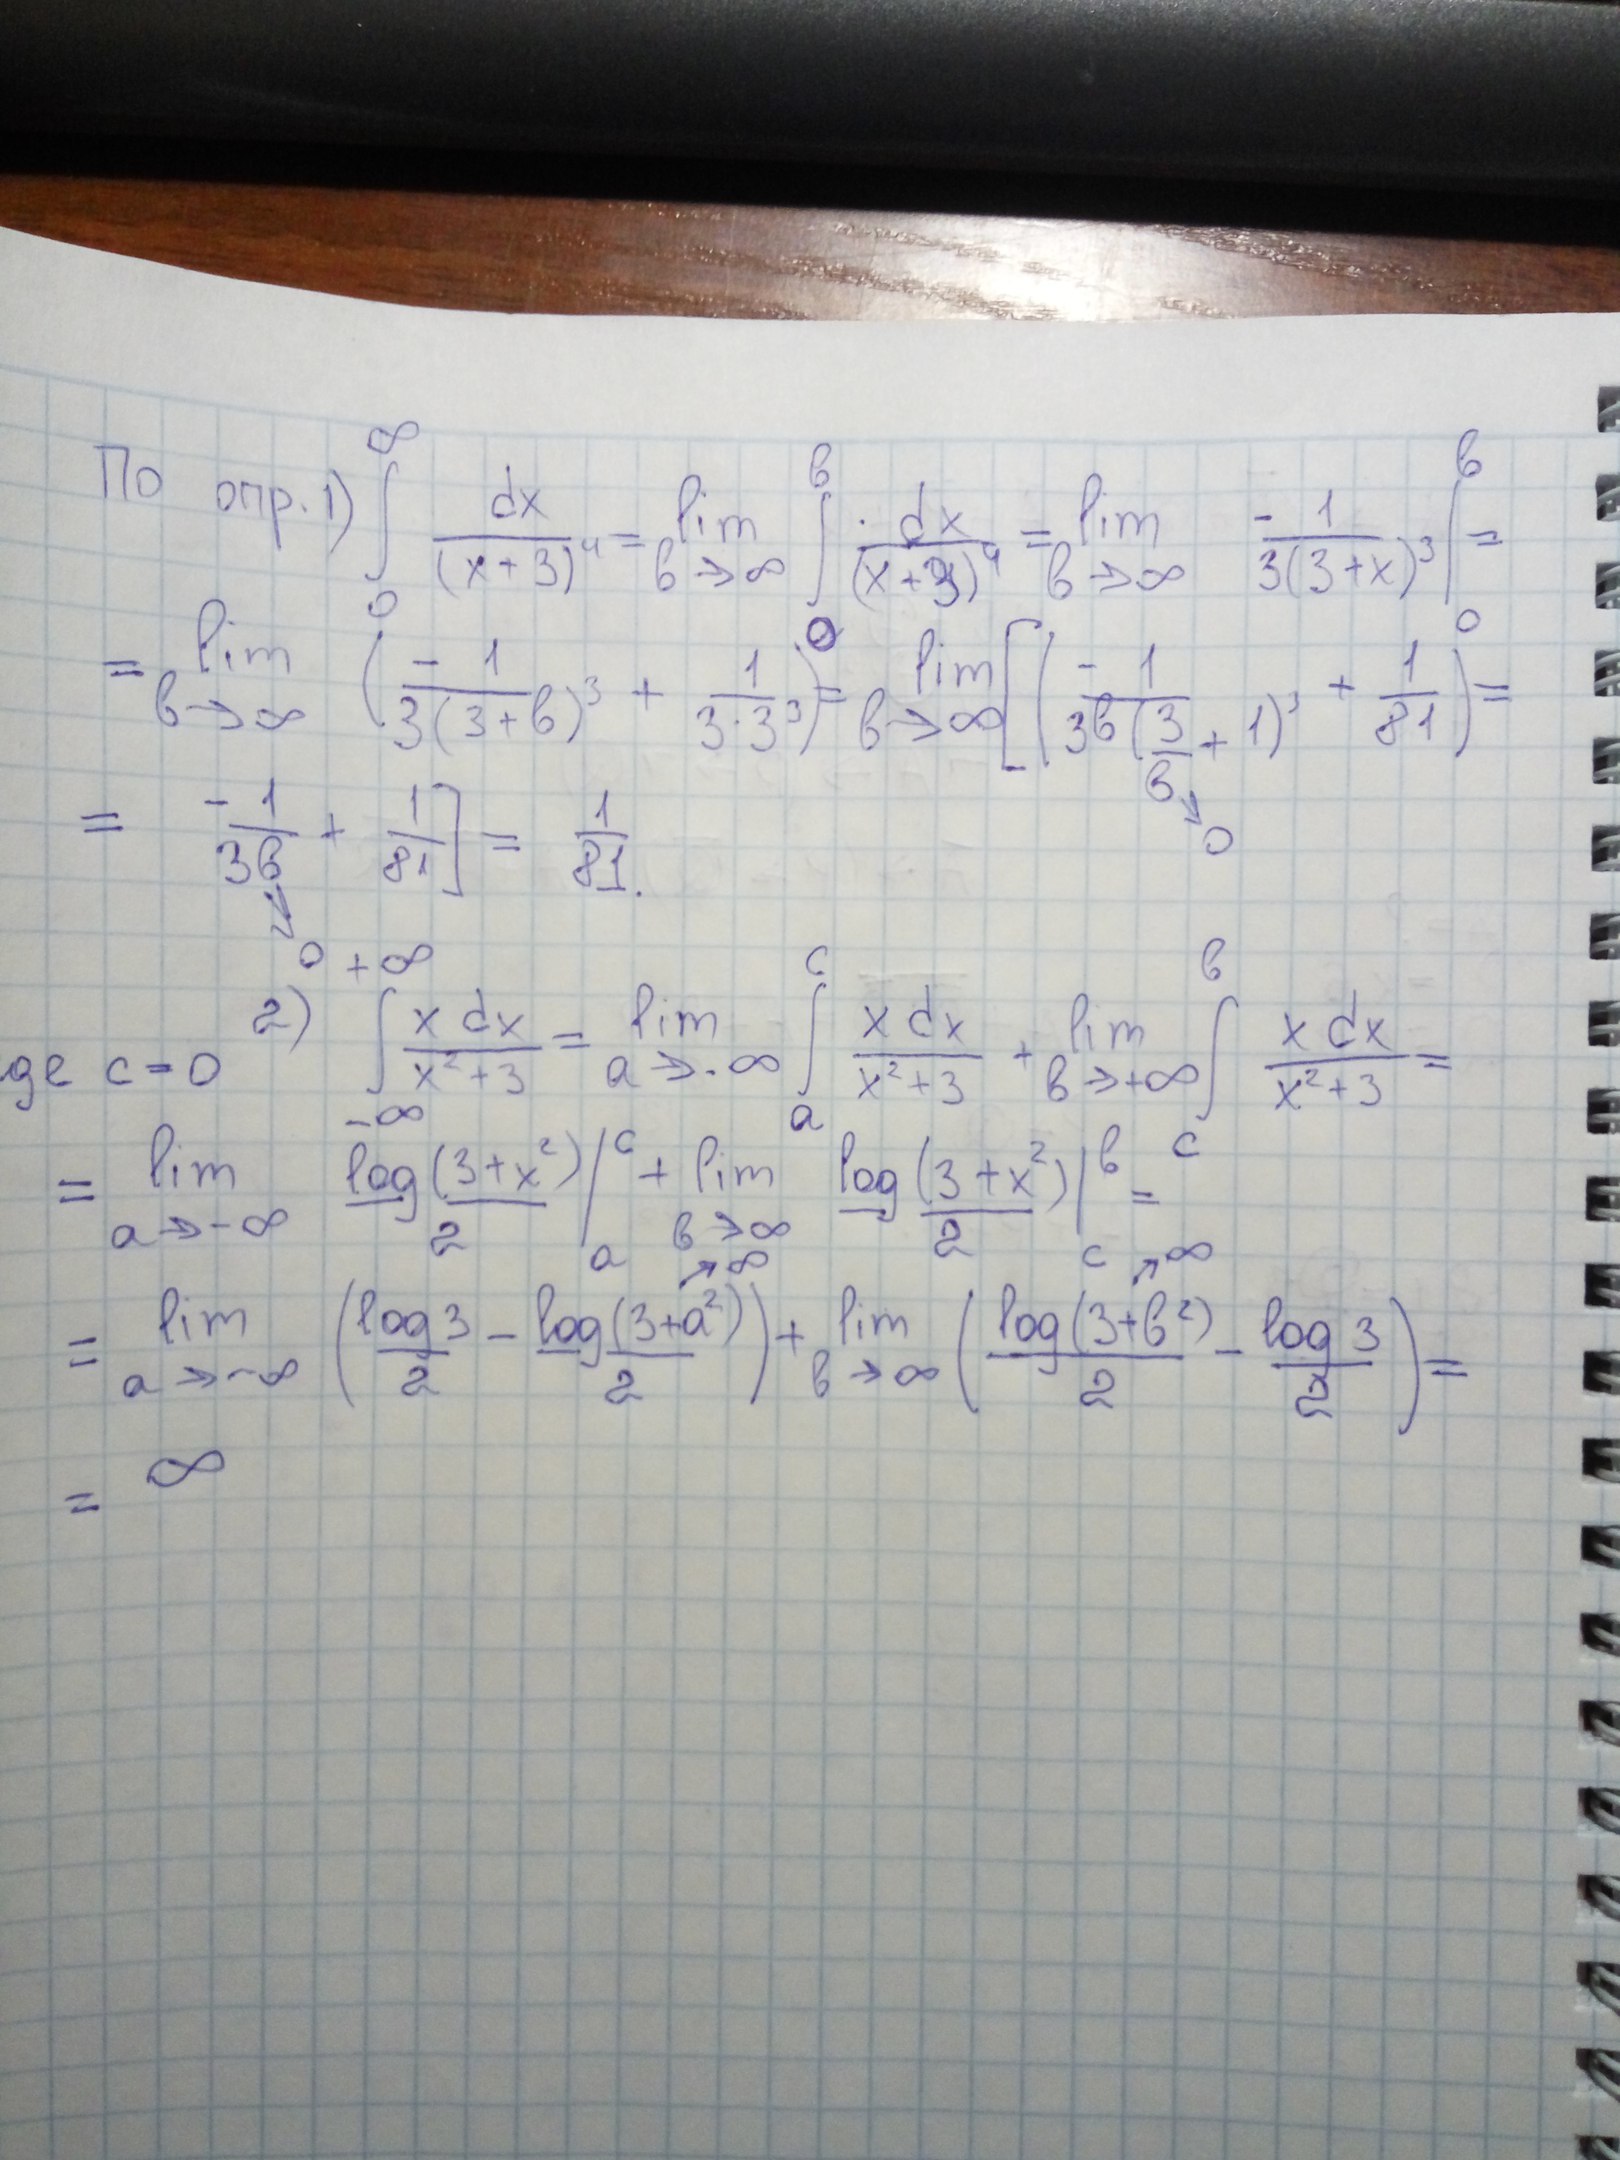 По опр. 1) ∫₀^∞ dx/(x+3)⁴ = lim_{b→∞} ∫₀^b dx/(x+3)⁴ = lim_{b→∞} -1/(3(3+x)³) |₀^b =
= lim_{b→∞} (-1/(3(3+b)³) + 1/(3·3³)) = lim_{b→∞} [(-1/(3b(3/b + 1)³) + 1/81) =
→ 0
= -1/(3b) + 1/81] = 1/81.
→ 0
2) ∫_{-∞}^{+∞} x dx/(x²+3) = lim_{a→-∞} ∫_a^c x dx/(x²+3) + lim_{b→+∞} ∫_c^b x dx/(x²+3) =
де c = 0
= lim_{a→-∞} log(3+x²)/2 |_a^c + lim_{b→∞} log(3+x²)/2 |_c^b =
↗∞ ↗∞
= lim_{a→-∞} (log 3/2 - log(3+a²)/2) + lim_{b→∞} (log(3+b²)/2 - log 3/2) =
= ∞